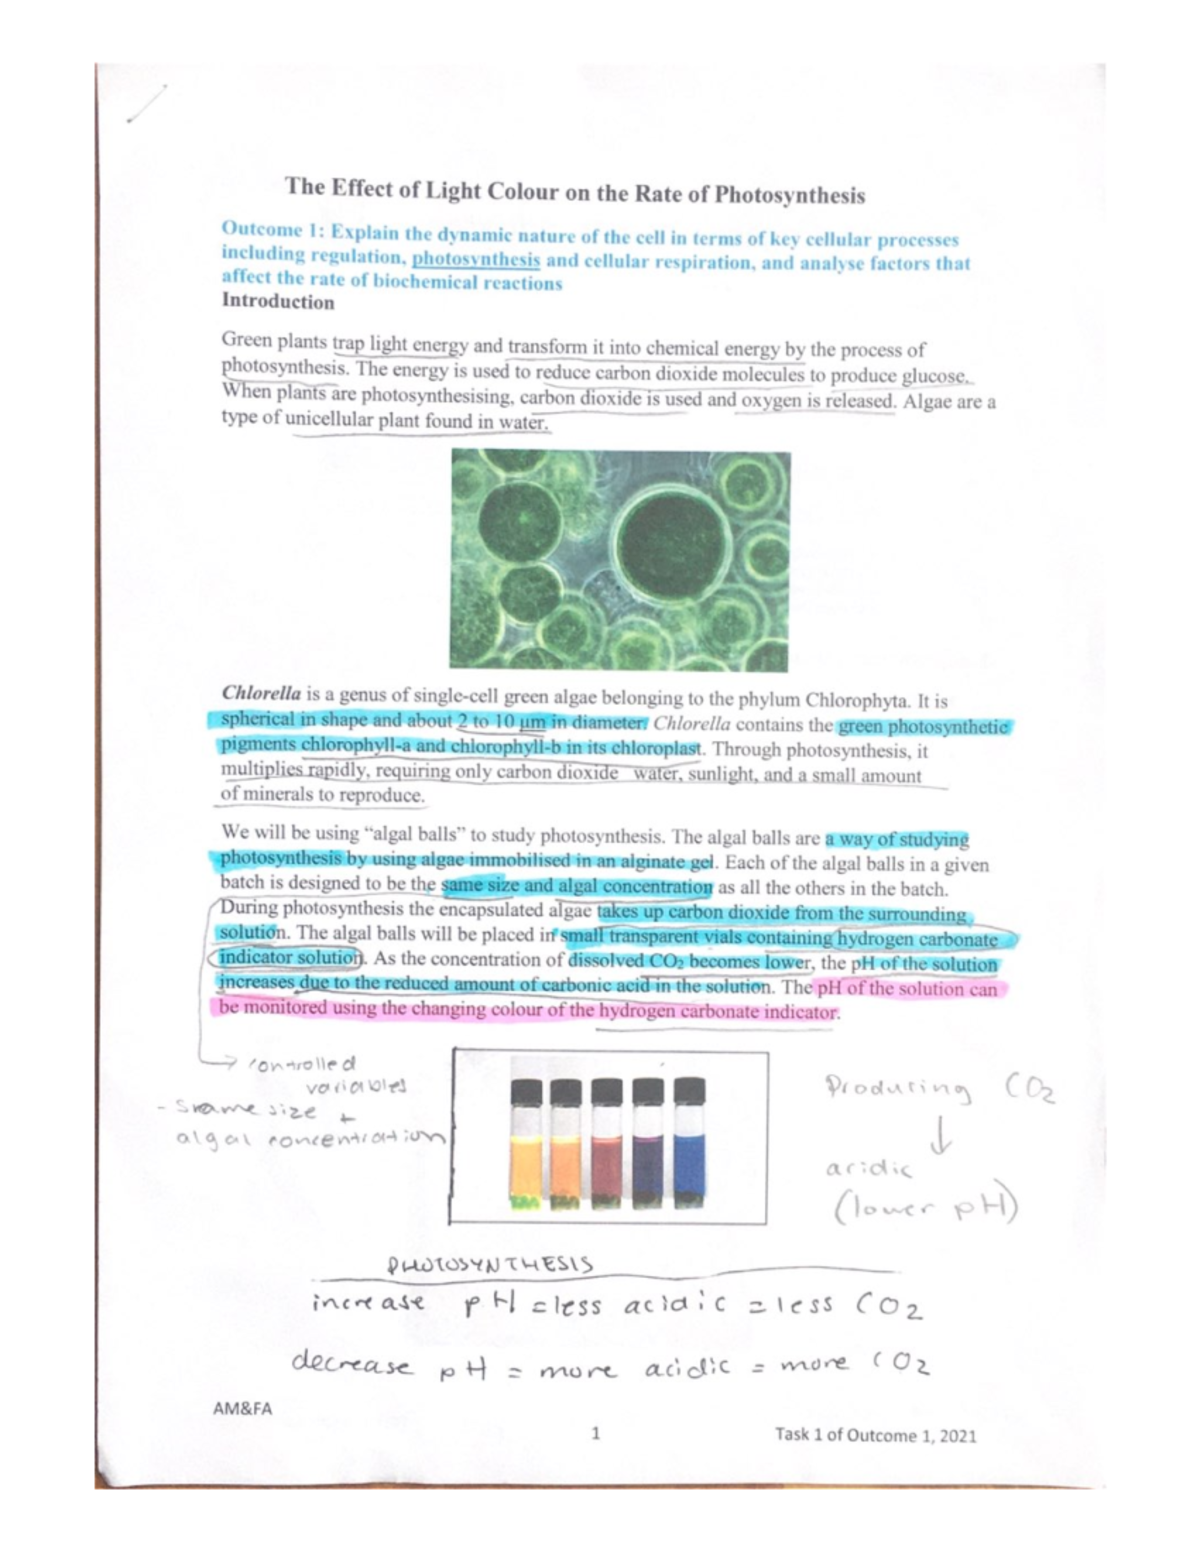 The Effect of Light Colour on the Rate of Photosynthesis
Outcome 1: Explain the dynamic nature of the cell in terms of key cellular processes
including regulation, photosynthesis and cellular respiration, and analyse factors that
affect the rate of biochemical reactions
Introduction
Green plants trap light energy and transform it into chemical energy by the process of
photosynthesis. The energy is used to reduce carbon dioxide molecules to produce glucose.
When plants are photosynthesising, carbon dioxide is used and oxygen is released. Algae are a
type of unicellular plant found in water.
Chlorella is a genus of single-cell green algae belonging to the phylum Chlorophyta. It is
spherical in shape and about 2 to 10 μm in diameter. Chlorella contains the green photosynthetic
pigments chlorophyll-a and chlorophyll-b in its chloroplast. Through photosynthesis, it
multiplies rapidly, requiring only carbon dioxide water, sunlight, and a small amount
of minerals to reproduce.
We will be using “algal balls” to study photosynthesis. The algal balls are a way of studying
photosynthesis by using algae immobilised in an alginate gel. Each of the algal balls in a given
batch is designed to be the same size and algal concentration as all the others in the batch.
During photosynthesis the encapsulated algae takes up carbon dioxide from the surrounding
solution. The algal balls will be placed in small transparent vials containing hydrogen carbonate
indicator solution. As the concentration of dissolved CO₂ becomes lower, the pH of the solution
increases due to the reduced amount of carbonic acid in the solution. The pH of the solution can
be monitored using the changing colour of the hydrogen carbonate indicator.
→ controlled
variables
- same size +
algal concentration
Producing CO2
↓
acidic
(lower pH)
PHOTOSYNTHESIS
increase pH = less acidic = less CO2
decrease pH = more acidic = more CO2
AM&FA
1
Task 1 of Outcome 1, 2021